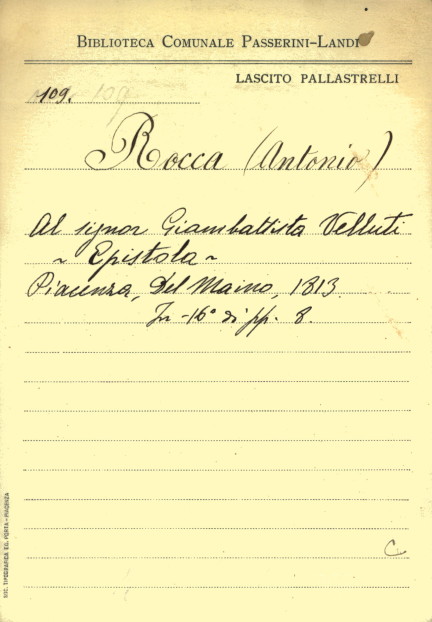 BIBLIOTECA COMUNALE PASSERINI-LANDI
LASCITO PALLASTRELLI
109. 109
Rocca (Antonio)
Al signor Giambattista Velluti
~ Epistola ~
Piacenza, Del Maino, 1813.
In -16° di pp. 8.
C
SOC. TIPOGRAFICA ED. PORTA - PIACENZA